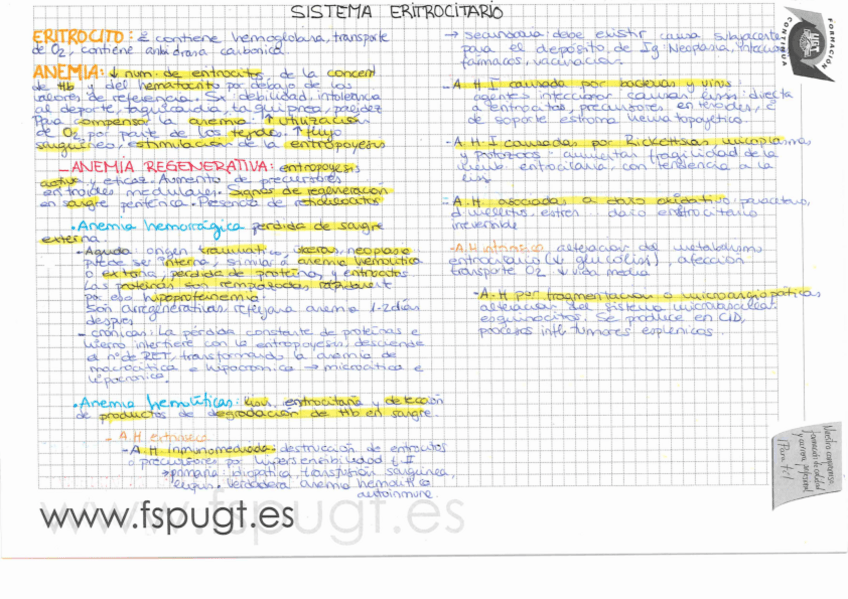 SISTEMA ERITROCITARIO
ERITROCITO: contiene hemoglobina, transporte
de O2, contiene anhidrasa carbonica.
ANEMIA: ↓ num. de eritrocitos, de la concent
de Hb y del hematocrito por debajo de los
valores de referencia. Sx: debilidad, intolerancia
al deporte, taquicardia, taquipnea, palidez
Para compensar la anemia: ↑ utilización
de O2 por parte de los tejidos, ↑ flujo
sanguíneo, estimulación de la eritropoyesis
- ANEMIA REGENERATIVA: eritropoyesis
activa y eficaz. Aumento de precursores
eritroides medulares. Signos de regeneración
en sangre periférica. Presencia de reticulocitos
• Anemia hemorrágica perdida de sangre
externa.
- Aguda: origen traumatico, úlceras, neoplasie
puede ser interna, similar a anemia hemolítica
o externa, perdida de proteínas y eritrocitos
Las proteínas son remplazadas
por eso hipoproteinemia.
Son arregenerativas, reflejara anemia 1-2 días
después
- crónicas: La pérdida constante de proteínas e
hierro interfiere con la eritropoyesis, desciende
el nº de RET, transformando la anemia de
macrocítica e hipocromica → microcítica e
hipocromica.
• Anemia hemolíticas: eritrocitaria y detección
de productos de degradación de Hb en sangre.
- A.H extrínseca
- A.H Inmunomediada: destrucción de eritrocitos
o precursores por hipersensibilidad t.II
→ primaria: idiopatica, transfusión sanguínea,
lupus. Verdadera anemia hemolítica
autoinmune.
→ secundaria: debe existir causa subyacente
para el depósito de Ig: Neoplasia, infeccion
fármacos, vacunación.
- A.H.I causada por bacterias y virus:
agentes infecciosos causan lisis directa
a eritrocitos, precursores eritroides,
de soporte estroma hematopoyético.
- A.H.I causadas por Rickettsias, micoplasmas
y protozoos: aumentan fragilidad de la
eritrocitaria, con tendencia a la
lisis.
- A.H asociadas a daño oxidativo: paracetamol,
daño eritrocitario
irreversible
- A.H intrínseca: alteración del metabolismo
eritrocitario (↓ glucolisis), afección
transporte O2 ↓ vida media
- A.H por fragmentación o microangiopáticas
alteración del sistema microvascular.
esquinocitos. Se produce en CID,
procesos infl, tumores esplenicos.
FORMACIÓN
CONTINUA
UGT
Nuestro compromiso:
formación de calidad
y mejora profesional
¡Para ti!
www.fspugt.es